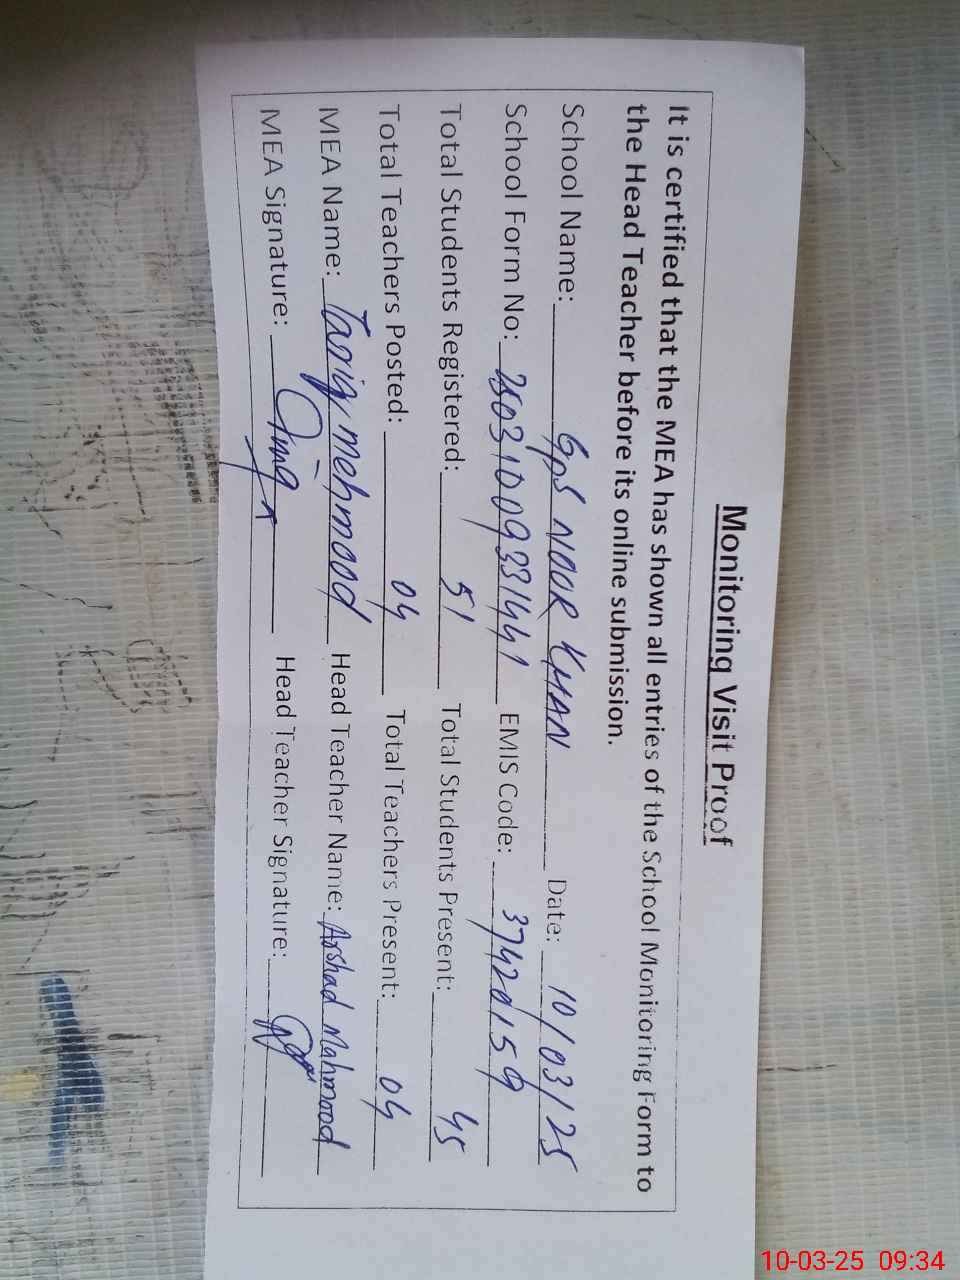 Monitoring Visit Proof
It is certified that the MEA has shown all entries of the School Monitoring Form to
the Head Teacher before its online submission.
School Name: GPS NOOR KHAN Date: 10/03/25
School Form No: 2503100933441 EMIS Code: 37420159
Total Students Registered: 51 Total Students Present: 45
Total Teachers Posted: 04 Total Teachers Present: 04
MEA Name: Tariq mehmood Head Teacher Name: Arshad Mahmood
MEA Signature: Head Teacher Signature:
10-03-25 09:34